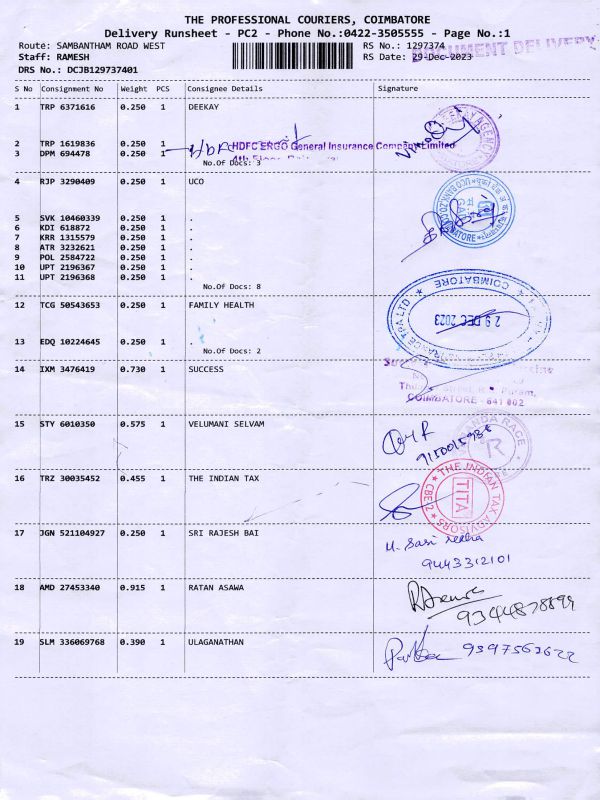 THE PROFESSIONAL COURIERS, COIMBATORE
Delivery Runsheet - PC2 - Phone No.:0422-3505555 - Page No.:1
Route: SAMBANTHAM ROAD WEST RS No.: 1297374
Staff: RAMESH RS Date: 29-Dec-2023
DOCUMENT DELIVERY
DRS No.: DCJB129737401
S No Consignment No Weight PCS Consignee Details Signature
1 TRP 6371616 0.250 1 DEEKAY
2 TRP 1619836 0.250 1
HDFC ERGO General Insurance Company Limited
3 DPM 694478 0.250 1
No.Of Docs: 3
4 RJP 3290409 0.250 1 UCO
5 SVK 10460339 0.250 1 .
6 KDI 618872 0.250 1 .
7 KRR 1315579 0.250 1 .
8 ATR 3232621 0.250 1 .
9 POL 2584722 0.250 1 .
10 UPT 2196367 0.250 1 .
11 UPT 2196368 0.250 1 .
No.Of Docs: 8
12 TCG 50543653 0.250 1 FAMILY HEALTH
COIMBATORE
29 DEC 2023
13 EDQ 10224645 0.250 1 .
No.Of Docs: 2
14 IXM 3476419 0.730 1 SUCCESS
COIMBATORE - 641 002
15 STY 6010350 0.575 1 VELUMANI SELVAM
16 TRZ 30035452 0.455 1 THE INDIAN TAX
THE INDIAN TAX ADVISORS
TITA
CBE 2
17 JGN 521104927 0.250 1 SRI RAJESH BAI
9443312101
18 AMD 27453340 0.915 1 RATAN ASAWA
19 SLM 336069768 0.390 1 ULAGANATHAN